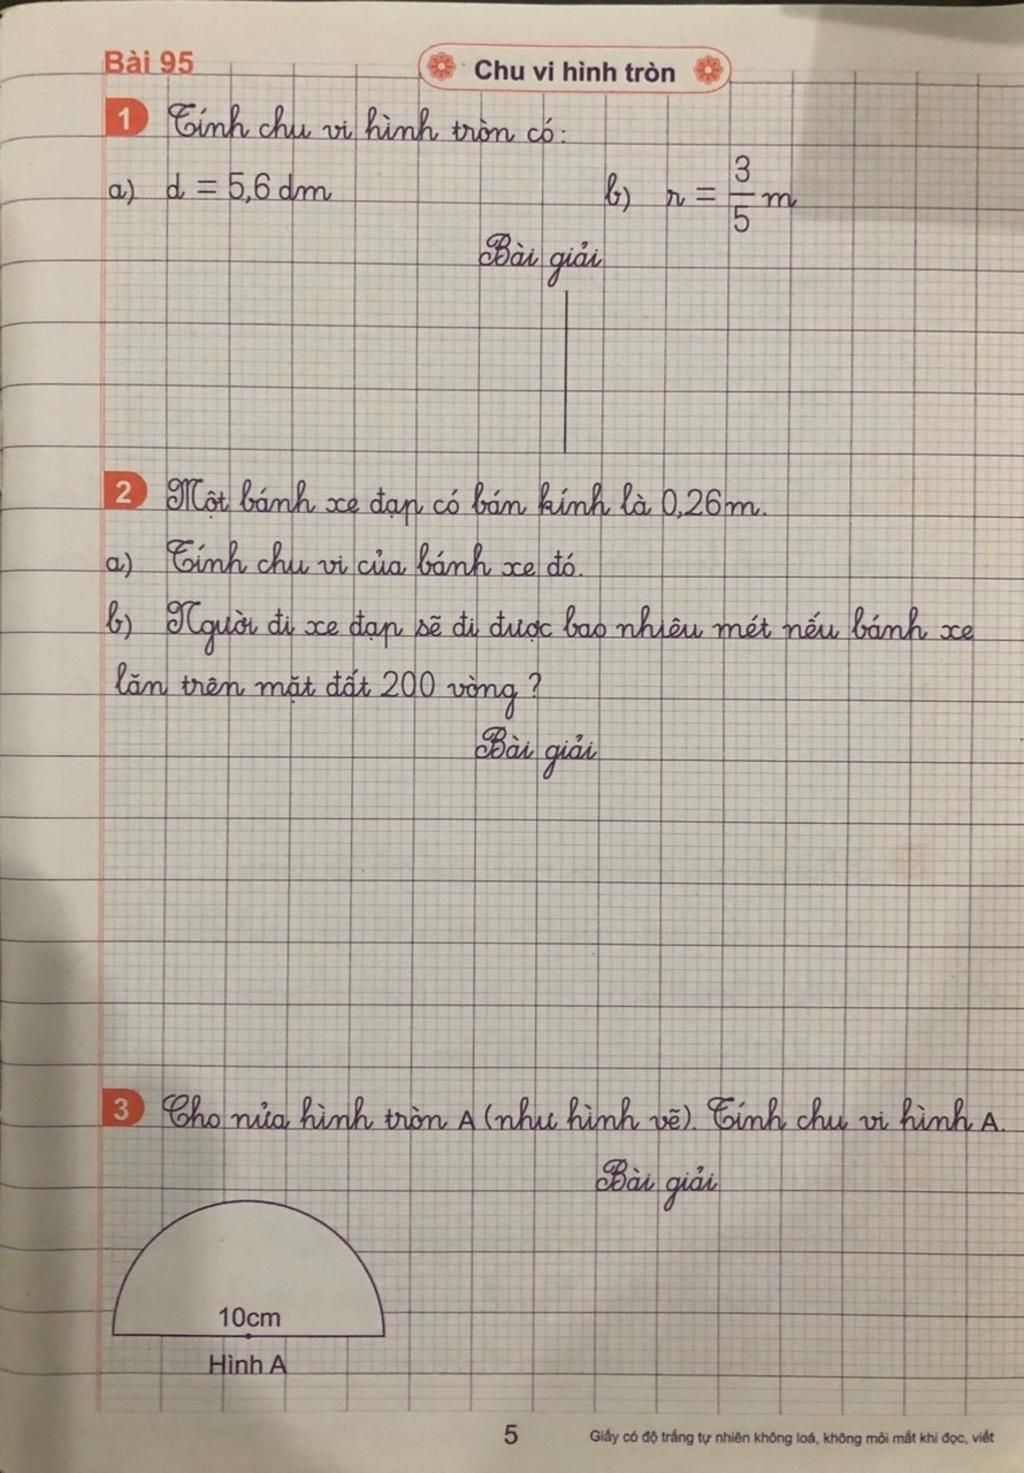 Bài 95
Chu vi hình tròn
1 Tính chu vi hình tròn có:
a) d = 5,6 dm b) r = 3/5 m
Bài giải
2 Một bánh xe đạp có bán kính là 0,26m.
a) Tính chu vi của bánh xe đó.
b) Người đi xe đạp sẽ đi được bao nhiêu mét nếu bánh xe
lăn trên mặt đất 200 vòng?
Bài giải
3 Cho nửa hình tròn A (như hình vẽ). Tính chu vi hình A.
Bài giải
10cm
Hình A
5
Giấy có độ trắng tự nhiên không loá, không mỏi mắt khi đọc, viết